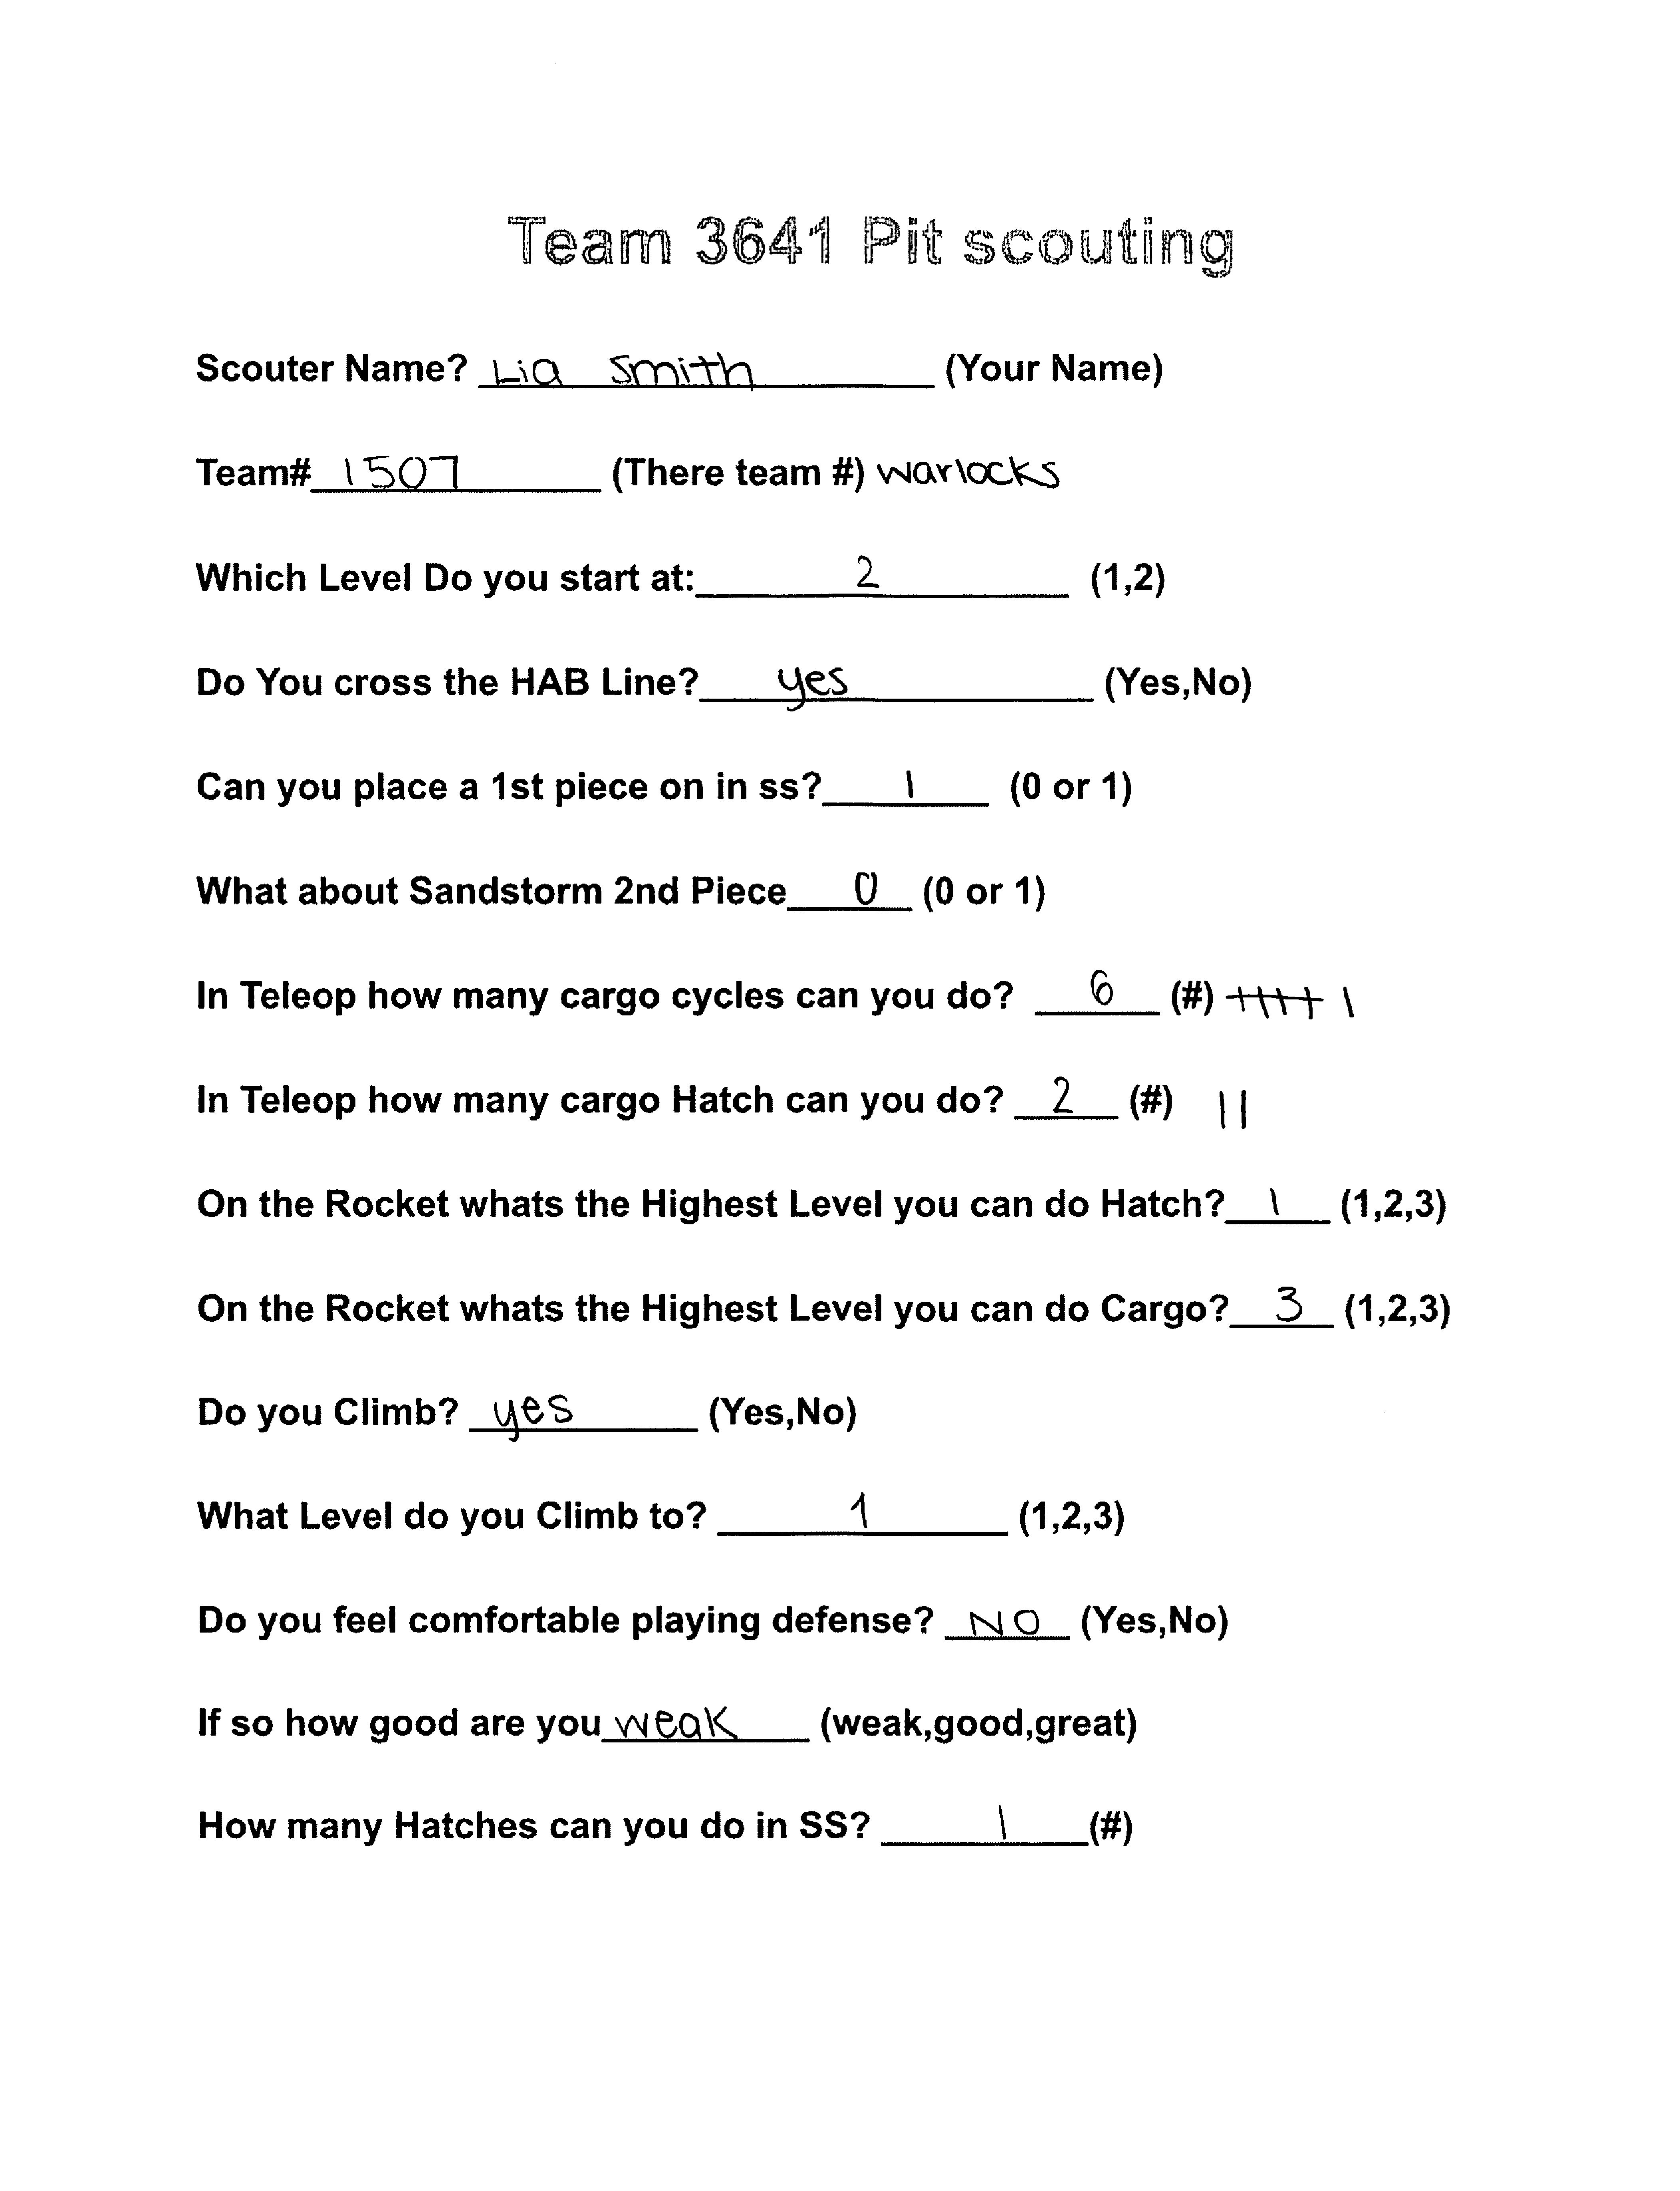 Team 3641 Pit scouting
Scouter Name? Lia Smith (Your Name)
Team# 1507 (There team #) warlocks
Which Level Do you start at: 2 (1,2)
Do You cross the HAB Line? yes (Yes,No)
Can you place a 1st piece on in ss? 1 (0 or 1)
What about Sandstorm 2nd Piece 0 (0 or 1)
In Teleop how many cargo cycles can you do? 6 (#) 卌 |
In Teleop how many cargo Hatch can you do? 2 (#) ||
On the Rocket whats the Highest Level you can do Hatch? 1 (1,2,3)
On the Rocket whats the Highest Level you can do Cargo? 3 (1,2,3)
Do you Climb? yes (Yes,No)
What Level do you Climb to? 1 (1,2,3)
Do you feel comfortable playing defense? NO (Yes,No)
If so how good are you weak (weak,good,great)
How many Hatches can you do in SS? 1 (#)